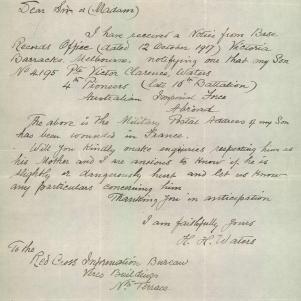 Dear Sir or (Madam)
I have received a Notes from Base
Records Office (dated 12 October 1917) Victoria
Barracks, Melbourne, notifying one that my Son
No 4195 Pte Victor Clarence, Waters
4th Pioneers (late 10th Battalion)
Australian Imperial Force
Abroad
The above is the Military Postal Address of my Son
has been wounded in France.
Will you kindly make enquiries respecting him as
his Mother and I are anxious to know if he is
slightly or dangerously hurt and let us know
any particulars concerning him
Thanking you in anticipation
I am faithfully Yours
H. H. Waters
To the
Red Cross Information Bureau
Buildings
Nth Terrace